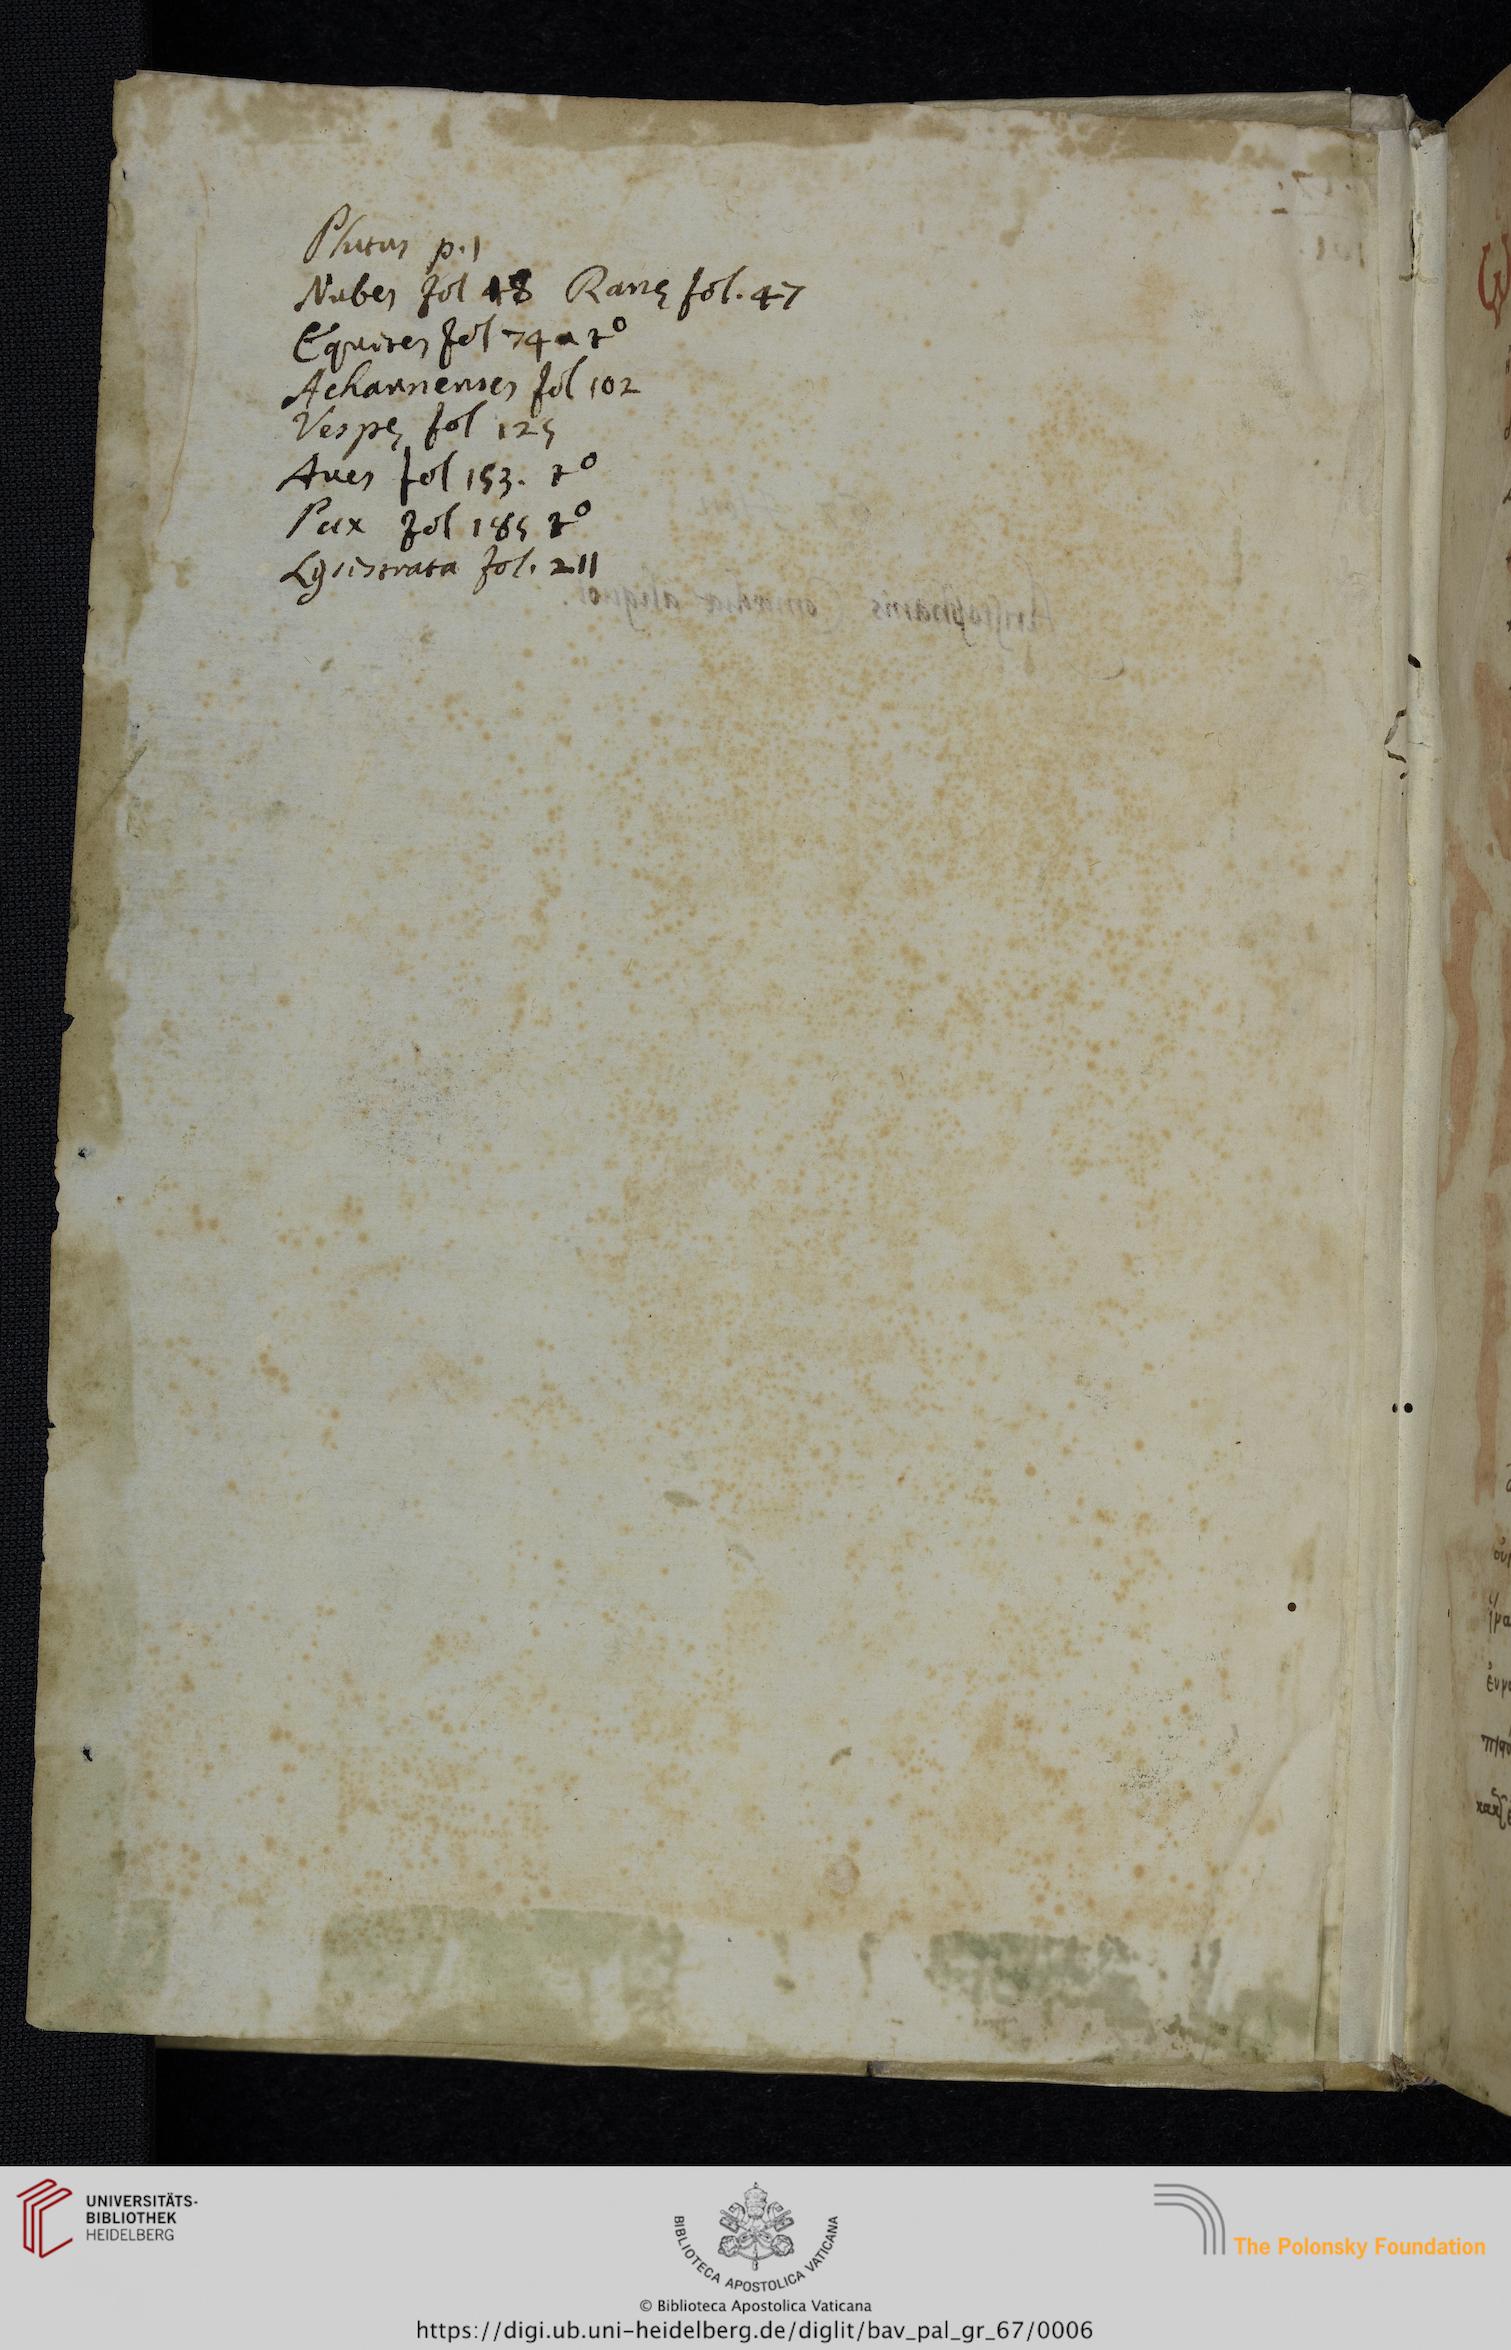 Plutus p. 1
Nubes fol 18 Ranę fol. 47
Equites fol 74 a tº
Acharnenses fol 102
Vespę fol 125
Aues fol 153. tº
Pax fol 185 tº
Lysistrata fol. 211
Aristophanis Comoediae aliquot.
UNIVERSITÄTS-
BIBLIOTHEK
HEIDELBERG
BIBLIOTECA APOSTOLICA VATICANA
The Polonsky Foundation
© Biblioteca Apostolica Vaticana
https://digi.ub.uni-heidelberg.de/diglit/bav_pal_gr_67/0006